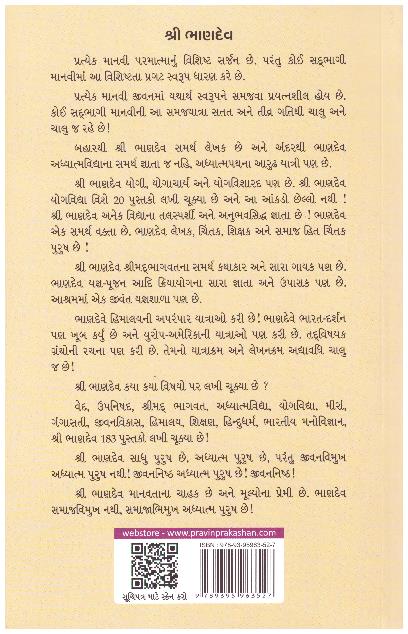 શ્રી ભાણદેવ
પ્રત્યેક માનવી પરમાત્માનું વિશિષ્ટ સર્જન છે, પરંતુ કોઈ સદ્ભાગી
માનવીમાં આ વિશિષ્ટતા પ્રગટ સ્વરૂપ ધારણ કરે છે.
પ્રત્યેક માનવી જીવનમાં યથાર્થ સ્વરૂપને સમજવા પ્રયત્નશીલ હોય છે.
કોઈ સદ્ભાગી માનવીની આ સમજયાત્રા સતત અને તીવ્ર ગતિથી ચાલુ અને
ચાલુ જ રહે છે!
બહારથી શ્રી ભાણદેવ સમર્થ લેખક છે અને અંદરથી ભાણદેવ
અધ્યાત્મવિદ્યાના સમર્થ જ્ઞાતા જ નહિ, અધ્યાત્મપથના આરુઢ યાત્રી પણ છે.
શ્રી ભાણદેવ યોગી, યોગાચાર્ય અને યોગવિશારદ પણ છે. શ્રી ભાણદેવ
યોગવિદ્યા વિશે 20 પુસ્તકો લખી ચૂક્યા છે અને આ આંકડો છેલ્લો નથી !
શ્રી ભાણદેવ અનેક વિદ્યાના તલસ્પર્શી અને અનુભવસિદ્ધ જ્ઞાતા છે ! ભાણદેવ
એક સમર્થ વક્તા છે. ભાણદેવ લેખક, ચિંતક, શિક્ષક અને સમાજ હિત ચિંતક
પુરુષ છે !
શ્રી ભાણદેવ શ્રીમદ્ભાગવતના સમર્થ કથાકાર અને સારા ગાયક પણ છે.
ભાણદેવ યજ્ઞ-પૂજન આદિ ક્રિયાયોગના સારા જ્ઞાતા અને ઉપાસક પણ છે.
આશ્રમમાં એક જીવંત યજ્ઞશાળા પણ છે.
ભાણદેવે હિમાલયની અપરંપાર યાત્રાઓ કરી છે! ભાણદેવે ભારત-દર્શન
પણ ખૂબ કર્યું છે અને યુરોપ-અમેરિકાની યાત્રાઓ પણ કરી છે. તદ્વિષયક
ગ્રંથોની રચના પણ કરી છે. તેમનો યાત્રાક્રમ અને લેખનક્રમ અદ્યાવધિ ચાલુ
જ છે!
શ્રી ભાણદેવ કયા કયા વિષયો પર લખી ચૂક્યા છે ?
વેદ, ઉપનિષદ, શ્રીમદ્ ભાગવત, અધ્યાત્મવિદ્યા, યોગવિદ્યા, મીરાં,
ગંગાસતી, જીવનવિકાસ, હિમાલય, શિક્ષણ, હિન્દુધર્મ, ભારતીય મનોવિજ્ઞાન,
શ્રી ભાણદેવ 183 પુસ્તકો લખી ચૂક્યા છે!
શ્રી ભાણદેવ સાધુ પુરુષ છે, અધ્યાત્મ પુરુષ છે, પરંતુ જીવનવિમુખ
અધ્યાત્મ પુરુષ નથી! જીવનનિષ્ઠ અધ્યાત્મ પુરુષ છે! જીવનનિષ્ઠ!
શ્રી ભાણદેવ માનવતાના ચાહક છે અને મૂલ્યોના પ્રેમી છે. ભાણદેવ
સમાજવિમુખ નથી, સમાજાભિમુખ અધ્યાત્મ પુરુષ છે!
webstore - www.pravinprakashan.com
ISBN : 978-93-95963-52-7
9 789395 963527
સૂચિપત્ર માટે સ્કેન કરો